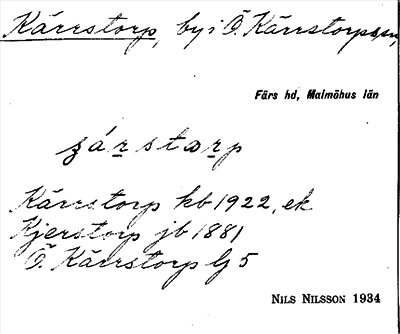 Kärrstorp, by i Ö. Kärrstorps sn,
Färs hd, Malmöhus län
Kärrstorp kb 1922, ek
Kjerstorp jb 1881
Ö. Kärrstorp Gj 5
NILS NILSSON 1934